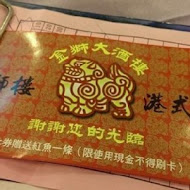 金獅大酒樓
獅樓
港式
謝謝您的光臨
券贈送紅魚一條（限使用現金不得刷卡）